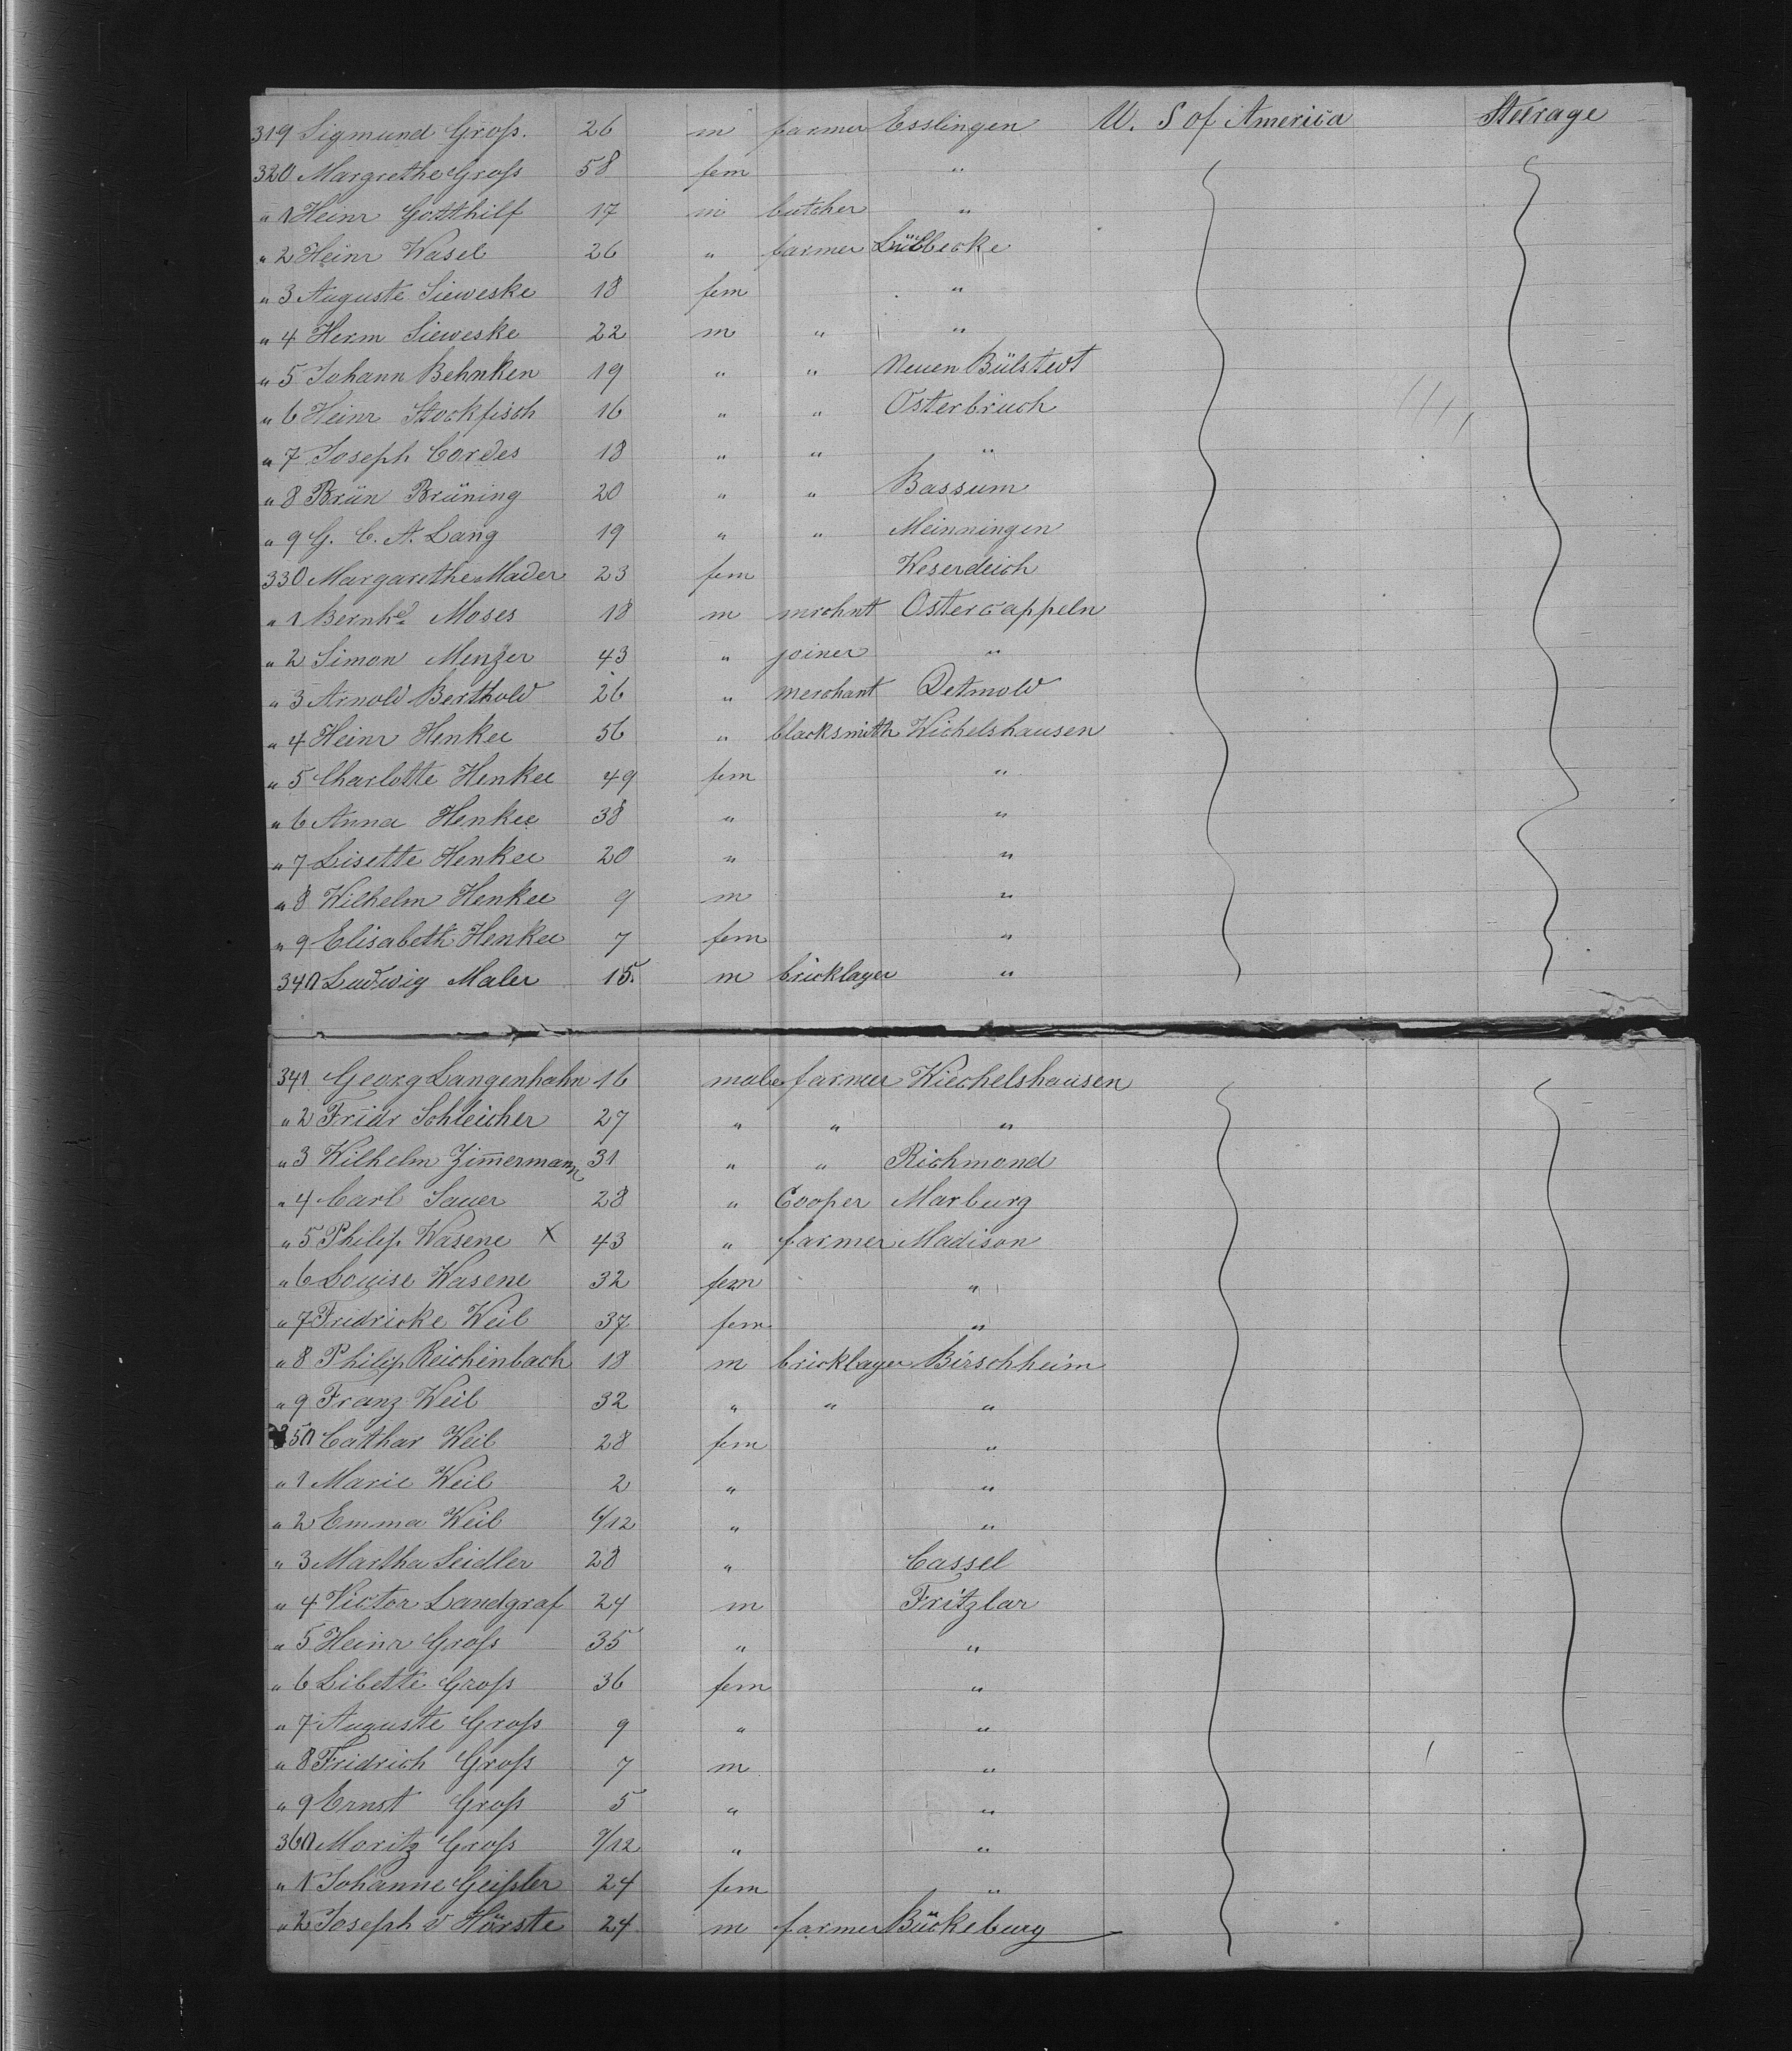 319 Sigmund Groſs. 26 m farmer Esslingen U. S of America Steerage
320 Margrethe Groſs 58 fem "
" 1 Heinr Gotthilf 17 m butcher "
" 2 Heinr Wasel 26 " farmer Lübbecke
" 3 Auguste Sieweske 18 fem "
" 4 Herm Sieweske 22 m " "
" 5 Johann Behnken 19 " " Neuen Bülstedt
" 6 Heinr Stockfisch 16 " " Osterbruch
" 7 Joseph Cordes 18 " " "
" 8 Brün Brüning 20 " " Bassum
" 9 G. C. A. Lang 19 " " Meinningen
330 Margarethe Mader 23 fem Weserdeich
" 1 Bernhd Moses 18 m mrchnt Ostercappeln
" 2 Simon Menzer 43 " joiner "
" 3 Arnold Berthold 26 " merchant Detmold
" 4 Heinr Henkee 56 " blacksmith Wichelshausen
" 5 Charlotte Henkee 49 fem "
" 6 Anna Henkee 38 " "
" 7 Lisette Henkee 20 " "
" 8 Wilhelm Henkee 9 m "
" 9 Elisabeth Henkee 7 fem "
340 Ludwig Maler 15. m bricklayer "
341 Georg Langenhahn 16 male farmer Wiechelshausen
" 2 Fridr Schleicher 27 " " "
" 3 Wilhelm Zimermann 31 " " Richmond
" 4 Carl Sauer 28 " Cooper Marburg
" 5 Philip Wasene X 43 " farmer Madison
" 6 Louise Wasene 32 fem "
" 7 Fridricke Weil 37 fem "
" 8 Philip Reichinbach 18 m bricklayer Birschheim
" 9 Franz Weil 32 " " "
350 Cathar Weil 28 fem "
" 1 Marie Weil 2 " "
" 2 Emma Weil 6/12 " "
" 3 Martha Seidler 28 " Cassel
" 4 Victor Landgraf 24 m Fritzlar
" 5 Heinr Groſs 35 " "
" 6 Libette Groſs 36 fem "
" 7 Auguste Groſs 9 " "
" 8 Fridrich Groſs 7 m "
" 9 Ernst Groſs 5 " "
360 Moritz Groſs 9/12 " "
" 1 Johanne Geiſsler 24 fem "
" 2 Joseph v Hörste 24 m farmer Bückeburg